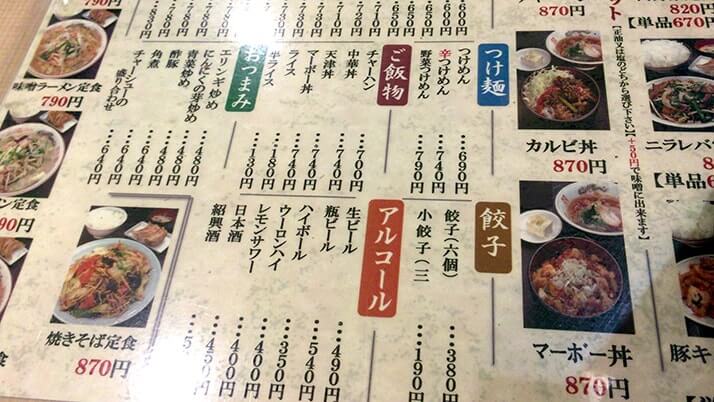 790円
味噌ラーメン定食
790円
ン定食
90円
焼きそば定食
870円
870円
カルビ丼
870円
マーボー丼
870円
820円
【単品670
ット【正油又は塩のどちらか選び下さい】【+50円で味噌に出来ます】
ニラレバ
870円
【単品
豚キ
870円
つけ麺
つけめん …690円
辛つけめん
野菜つけめん …790円
ご飯物
チャーハン …700円
中華丼 …740円
天津丼 …740円
マーボー丼 …700円
ライス …180円
半ライス …130円
おつまみ
エリンギ炒め …480円
にんにくの芽炒め …480円
青菜炒め
酢豚
角煮 …640円
チャーシューの
盛り合わせ …640円
餃子
餃子(六個) …380円
小餃子(三 …190円
アルコール
生ビール …490円
瓶ビール …540円
ハイボール
ウーロンハイ …400円
レモンサワー …400円
日本酒 …450円
紹興酒